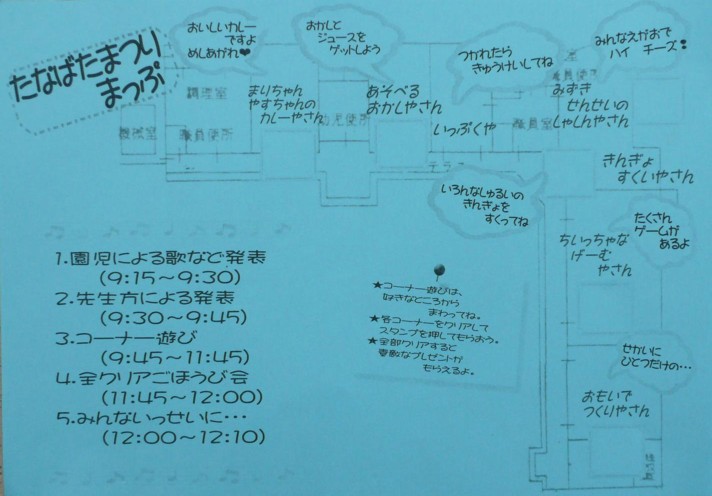 たなばたまつり
まっぷ
おいしいカレー
ですよ
めしあがれ♥
おかしと
ジュースを
ゲットしよう
つかれたら
きゅうけいしてね
みんなえがおで
ハイ チーズ❢
調理室
まりちゃん
やすちゃんの
カレーやさん
あそべる
おかしやさん
いっぷくや
職員室
みずき
せんせいの
しゃしんやさん
機械室
職員便所
幼児便所
テラス
きんぎょ
すくいやさん
いろんなしゅるいの
きんぎょを
すくってね
たくさん
ゲームが
あるよ
ちいっちゃな
げーむ
やさん
1.園児による歌など発表
(9:15～9:30)
2.先生方による発表
(9:30～9:45)
3.コーナー遊び
(9:45～11:45)
4.全クリアごほうび会
(11:45～12:00)
5.みんないっせいに・・・
(12:00～12:10)
★コーナー遊びは、
好きなところから
まわってね。
★各コーナーをクリアして
スタンプを押してもらおう。
★全部クリアすると
素敵なプレゼントが
もらえるよ。
せかいに
ひとつだけの・・・
おもいで
つくりやさん